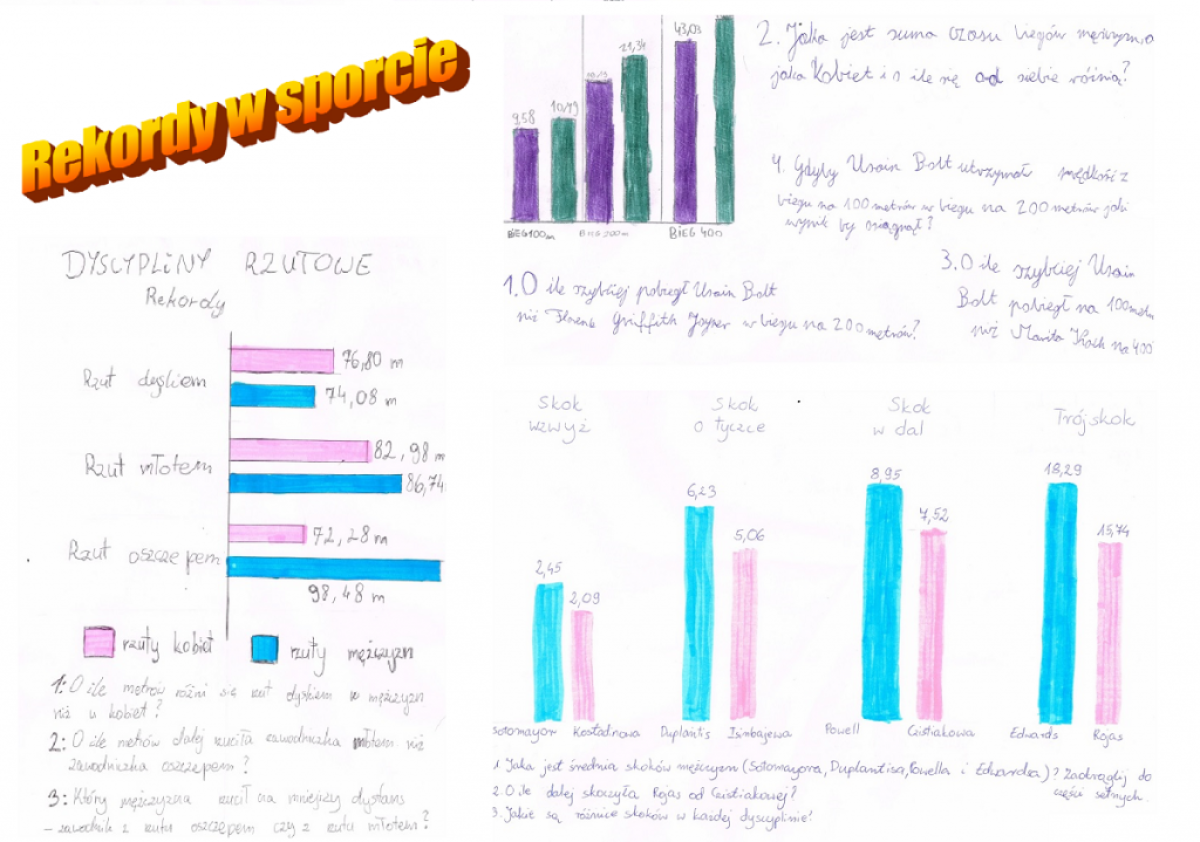 Rekordy w sporcie
9,58
10,49
21,34
43,03
BIEG 100m
BIEG 200m
BIEG 400
2. Jaka jest suma czasu biegów mężczyzn a
jaka kobiet i o ile się od siebie różnią?
4. Gdyby Usain Bolt utrzymał prędkość z
biegu na 100 metrów w biegu na 200 metrów jaki
wynik by osiągnął?
1. O ile szybciej pobiegł Usain Bolt
niż Griffith Joyner w biegu na 200 metrów?
3. O ile szybciej Usain
Bolt pobiegł na 100
niż Marita Koch na 400
DYSCYPLINY RZUTOWE
Rekordy
Rzut dyskiem
76,80 m
74,08 m
Rzut młotem
82,98 m
86,74
Rzut oszczepem
72,28 m
98,48 m
rzuty kobiet
rzuty mężczyzn
1: O ile metrów różni się rzut dyskiem u mężczyzn
niż u kobiet?
2: O ile metrów dalej rzuciła zawodniczka młotem niż
zawodniczka oszczepem?
3: Który mężczyzna rzucił na mniejszy dystans
– zawodnik z rzutu oszczepem czy z rzutu młotem?
Skok wzwyż
Skok o tyczce
Skok w dal
Trójskok
2,45
2,09
6,23
5,06
8,95
7,52
18,29
15,74
Sotomayor
Kostadinowa
Duplantis
Isinbajewa
Powell
Czistiakowa
Edwards
Rojas
1. Jaka jest średnia skoków mężczyzn (Sotomayora, Duplantisa, Powella i Edwardsa)? Zaokrąglij do
części setnych.
2. O ile dalej skoczyła Rojas od Czistiakowej?
3. Jakie są różnice skoków w każdej dyscyplinie?